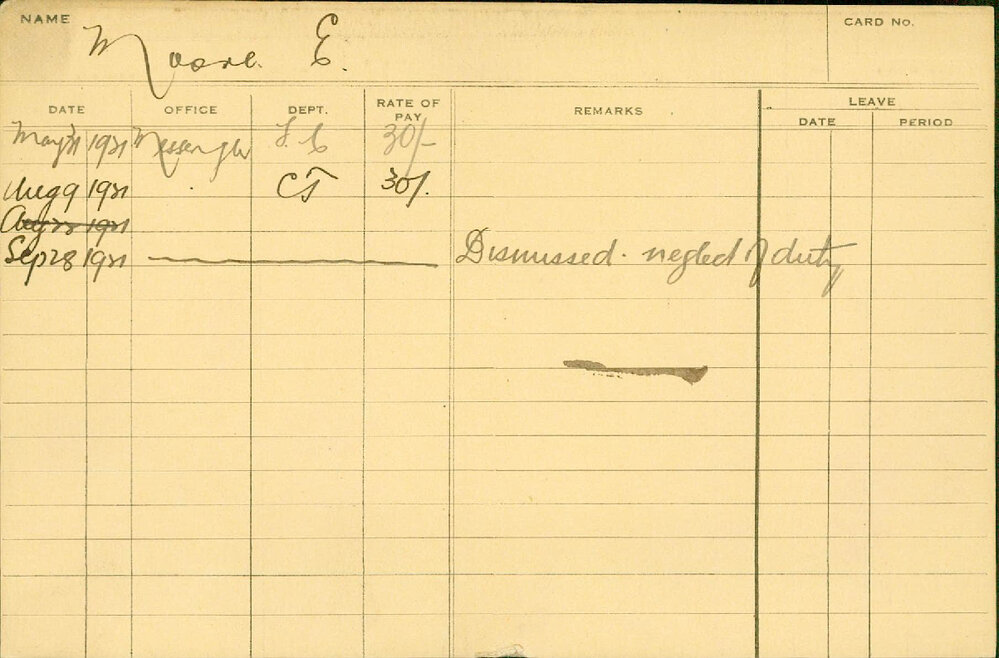 NAME Moore. E. CARD No.
DATE OFFICE DEPT. RATE OF PAY REMARKS LEAVE
DATE PERIOD
May 1921 Messenger 30/-
Aug 9 1921 " CT 30/-
Aug 1921
Sep 28 1921 Dismissed. neglect of duty